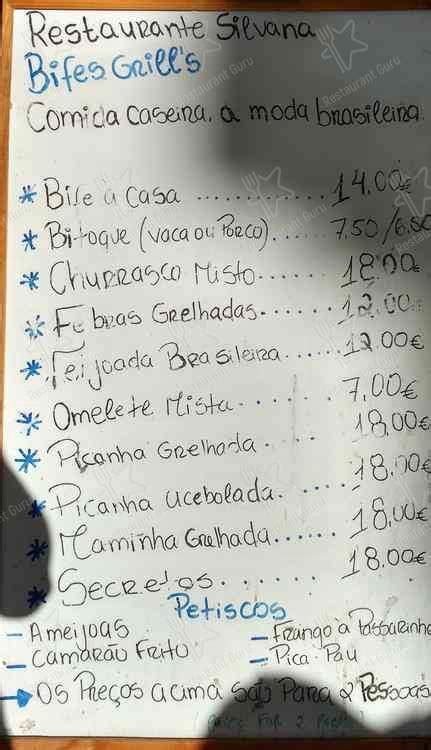 Restaurante Silvana
Bifes Grill's
Comida caseira, a moda brasileira.
* Bife a casa ............ 14.00€
* Bitoque (vaca ou Porco)...... 7.50/6.50
* Churrasco Misto....... 18.00€
* Febras Grelhadas....... 12.00€
* Feijoada Brasileira...... 12.00€
* Omelete Mista....... 7,00€
* Picanha Grelhada..... 18,00€
* Picanha acebolada...... 18.00€
* Maminha Grelhada...... 18,00€
* Secretos....... 18.00€
Petiscos
- Ameijoas
- Camarão Frito
- Frango a Passarinho
- Pica-Pau
→ Os Preços acima são Para 2 Pessoas
Restaurant Guru